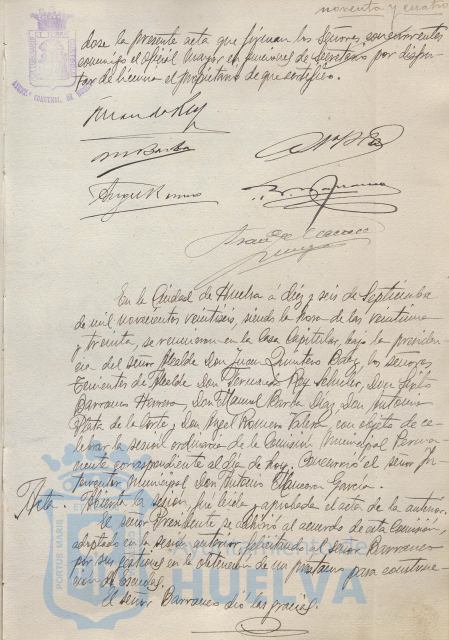 noventa y cuatro
dose la presente acta que firman los Señores concurrentes
conmigo el oficial mayor en funciones de Secretario por disfru-
tar de licencia el propietario de que certifico.
M Barba
Angel Romero
En la Ciudad de Huelva á diez y seis de Septiembre
de mil novecientos veintiseis, siendo la hora de las veintiuna
y treinta, se reunieron en la Casa Capitular, bajo la presiden-
cia del señor Alcalde Don Juan Quintero Báez los señores
Tenientes de Alcalde Don Fernando Rey Schuler, Don
Barranco Herrera, Don Manuel Barba Diaz, Don Antonio
Plata de la Corte y Don Angel Romero Valero con objeto de ce-
lebrar la sesión ordinaria de la Comisión Municipal Perma-
nente correspondiente al día de hoy. Concurrió el señor In-
terventor Municipal Don Antonio García.
Acta. Abierta la sesión, fué leida y aprobada el acta de la anterior.
El señor Presidente se adhirió al acuerdo de esta Comisión,
adoptado en la sesión anterior felicitando al señor Barranco
por sus gestiones en la obtención de un préstamo para construc-
ción de escuelas.
El señor Barranco dió las gracias.
PORTUS MARIS
Ayuntamiento de
HUELVA